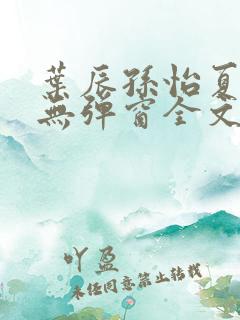 葉辰孫怡夏
無彈窗全文
吖盈
未經同意禁止轉載